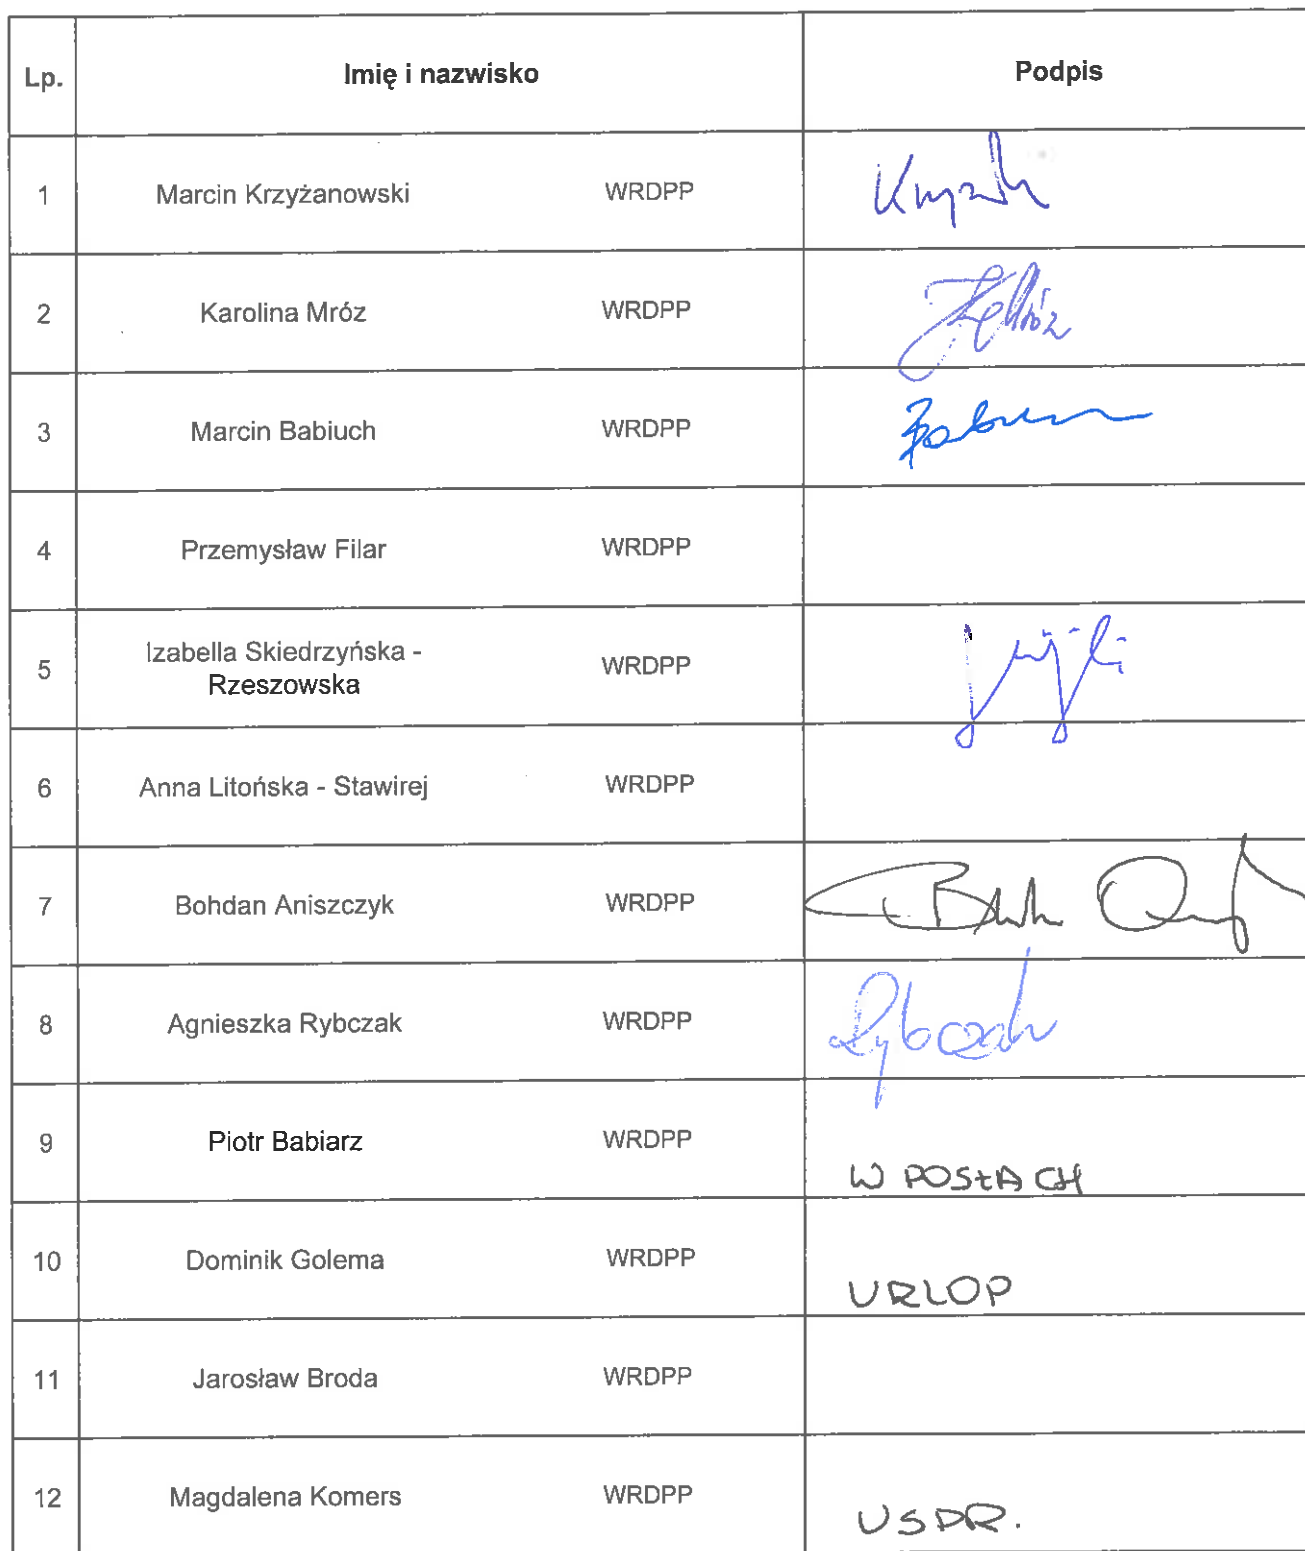 Lp. Imię i nazwisko Podpis
1 Marcin Krzyżanowski WRDPP
2 Karolina Mróz WRDPP KMróz
3 Marcin Babiuch WRDPP
4 Przemysław Filar WRDPP
5 Izabella Skiedrzyńska - WRDPP
Rzeszowska
6 Anna Litońska - Stawirej WRDPP
7 Bohdan Aniszczyk WRDPP
8 Agnieszka Rybczak WRDPP Rybczak
9 Piotr Babiarz WRDPP W POSŁACH
10 Dominik Golema WRDPP URLOP
11 Jarosław Broda WRDPP
12 Magdalena Komers WRDPP USPR.